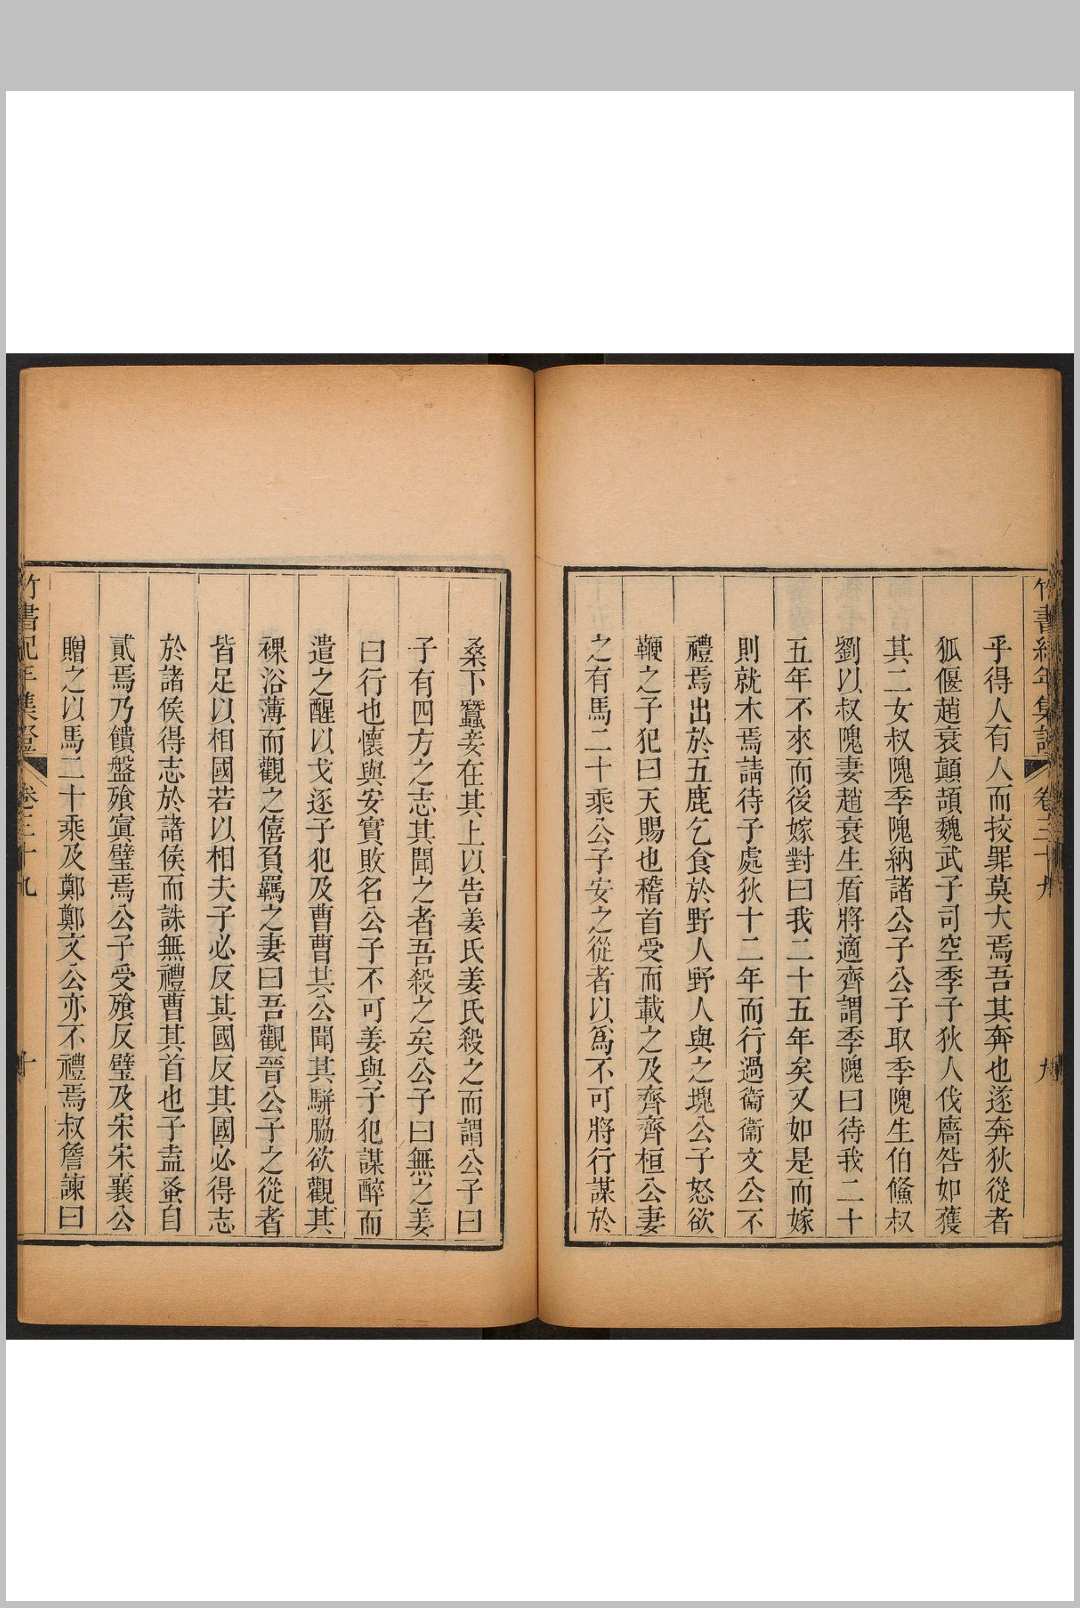 竹書紀年集證 卷三十九 九
乎得人有人而挍罪莫大焉吾其奔也遂奔狄從者
狐偃趙衰顛頡魏武子司空季子狄人伐廧咎如獲
其二女叔隗季隗納諸公子公子取季隗生伯鯈叔
劉以叔隗妻趙衰生盾將適齊謂季隗曰待我二十
五年不來而後嫁對曰我二十五年矣又如是而嫁
則就木焉請待子處狄十二年而行過衞衞文公不
禮焉出於五鹿乞食於野人野人與之塊公子怒欲
鞭之子犯曰天賜也稽首受而載之及齊齊桓公妻
之有馬二十乘公子安之從者以爲不可將行謀於
桑下蠶妾在其上以告姜氏姜氏殺之而謂公子曰
子有四方之志其聞之者吾殺之矣公子曰無之姜
曰行也懷與安實敗名公子不可姜與子犯謀醉而
遣之醒以戈逐子犯及曹曹共公聞其駢脇欲觀其
裸浴薄而觀之僖負羈之妻曰吾觀晉公子之從者
皆足以相國若以相夫子必反其國反其國必得志
於諸侯得志於諸侯而誅無禮曹其首也子盍蚤自
貳焉乃饋盤飱寘璧焉公子受飱反璧及宋宋襄公
贈之以馬二十乘及鄭鄭文公亦不禮焉叔詹諫曰
竹書紀年集證 卷三十九 十